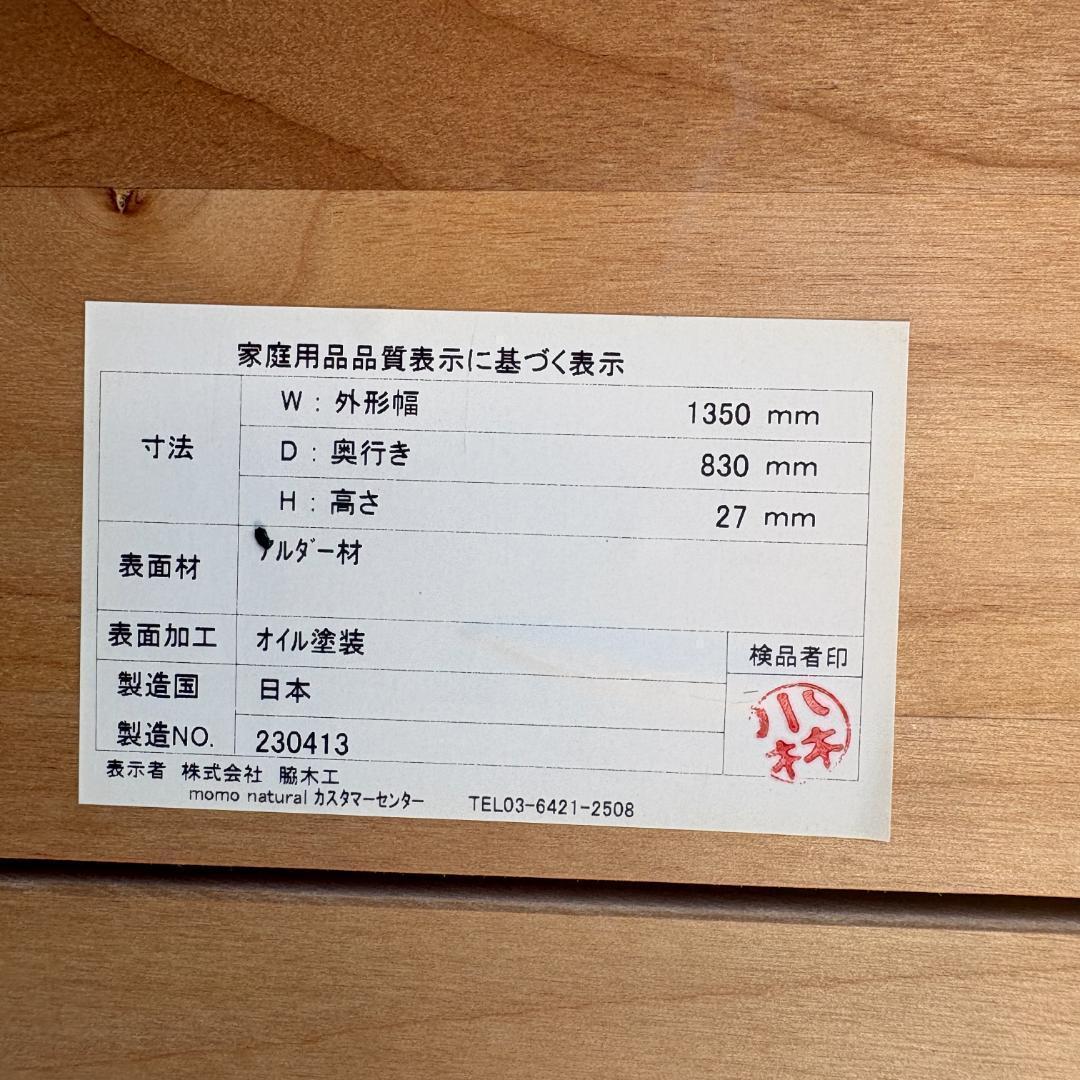 家庭用品品質表示に基づく表示
寸法
W : 外形幅 1350 mm
D : 奥行き 830 mm
H : 高さ 27 mm
表面材 アルダー材
表面加工 オイル塗装
検品者印
製造国 日本
製造NO. 230413
表示者 株式会社 脇木工
momo natural カスタマーセンター TEL03-6421-2508